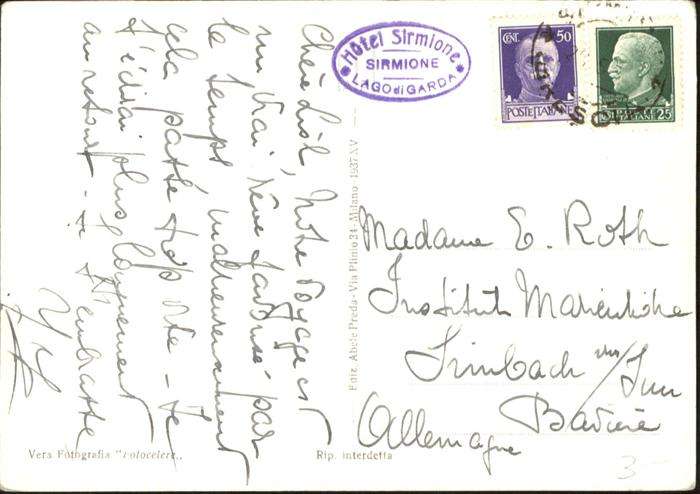 Hôtel Sirmione
SIRMIONE
LAGO di GARDA
CENT. 50
POSTE ITALIANE
25
Chère Lisl, Notre voyage est
un vrai rêve favorisé par
le temps malheureusement
cela passe trop vite - Je
t'écrirai plus longuement
au retour - Je t'embrasse
Madame E. Roth
Institut Marienhöhe
Simbach am/Inn
Bavière
Allemagne
Ediz. Abele Preda - Via Plinio 34 - Milano 1937-XV
Vera Fotografia "Fotocelere"
Rip. interdetta
3-